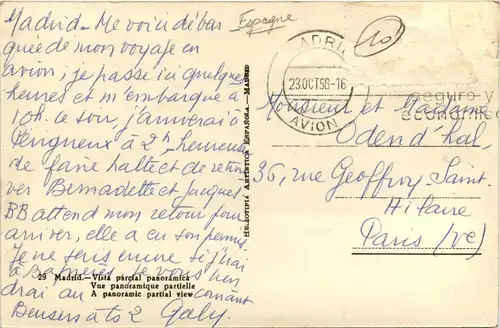 Madrid - Me voici débar
quée de mon voyage en
avion; je passe ici quelques
heures et m'embarque à
10h. le soir, j'arriverai à
Périgueux à 2h, heureuse
de faire halte et de retrou
ver Bernadette et Jacques
BB attend mon retour pour
arriver, elle a eu son permis.
Je ne sais encore si j'irai
à je vous
drai au
Gaby
Espagne
10
MADRID
23 OCT 58 - 16
AVION
seguro y
económico
Monsieur et Madame
Oden d'hal,
36, rue Geoffroy-Saint-
Hilaire
Paris (Ve)
HELIOTIPIA ARTÍSTICA ESPAÑOLA. — MADRID
29 Madrid.—Vista parcial panorámica
Vue panoramique partielle
A panoramic partial view